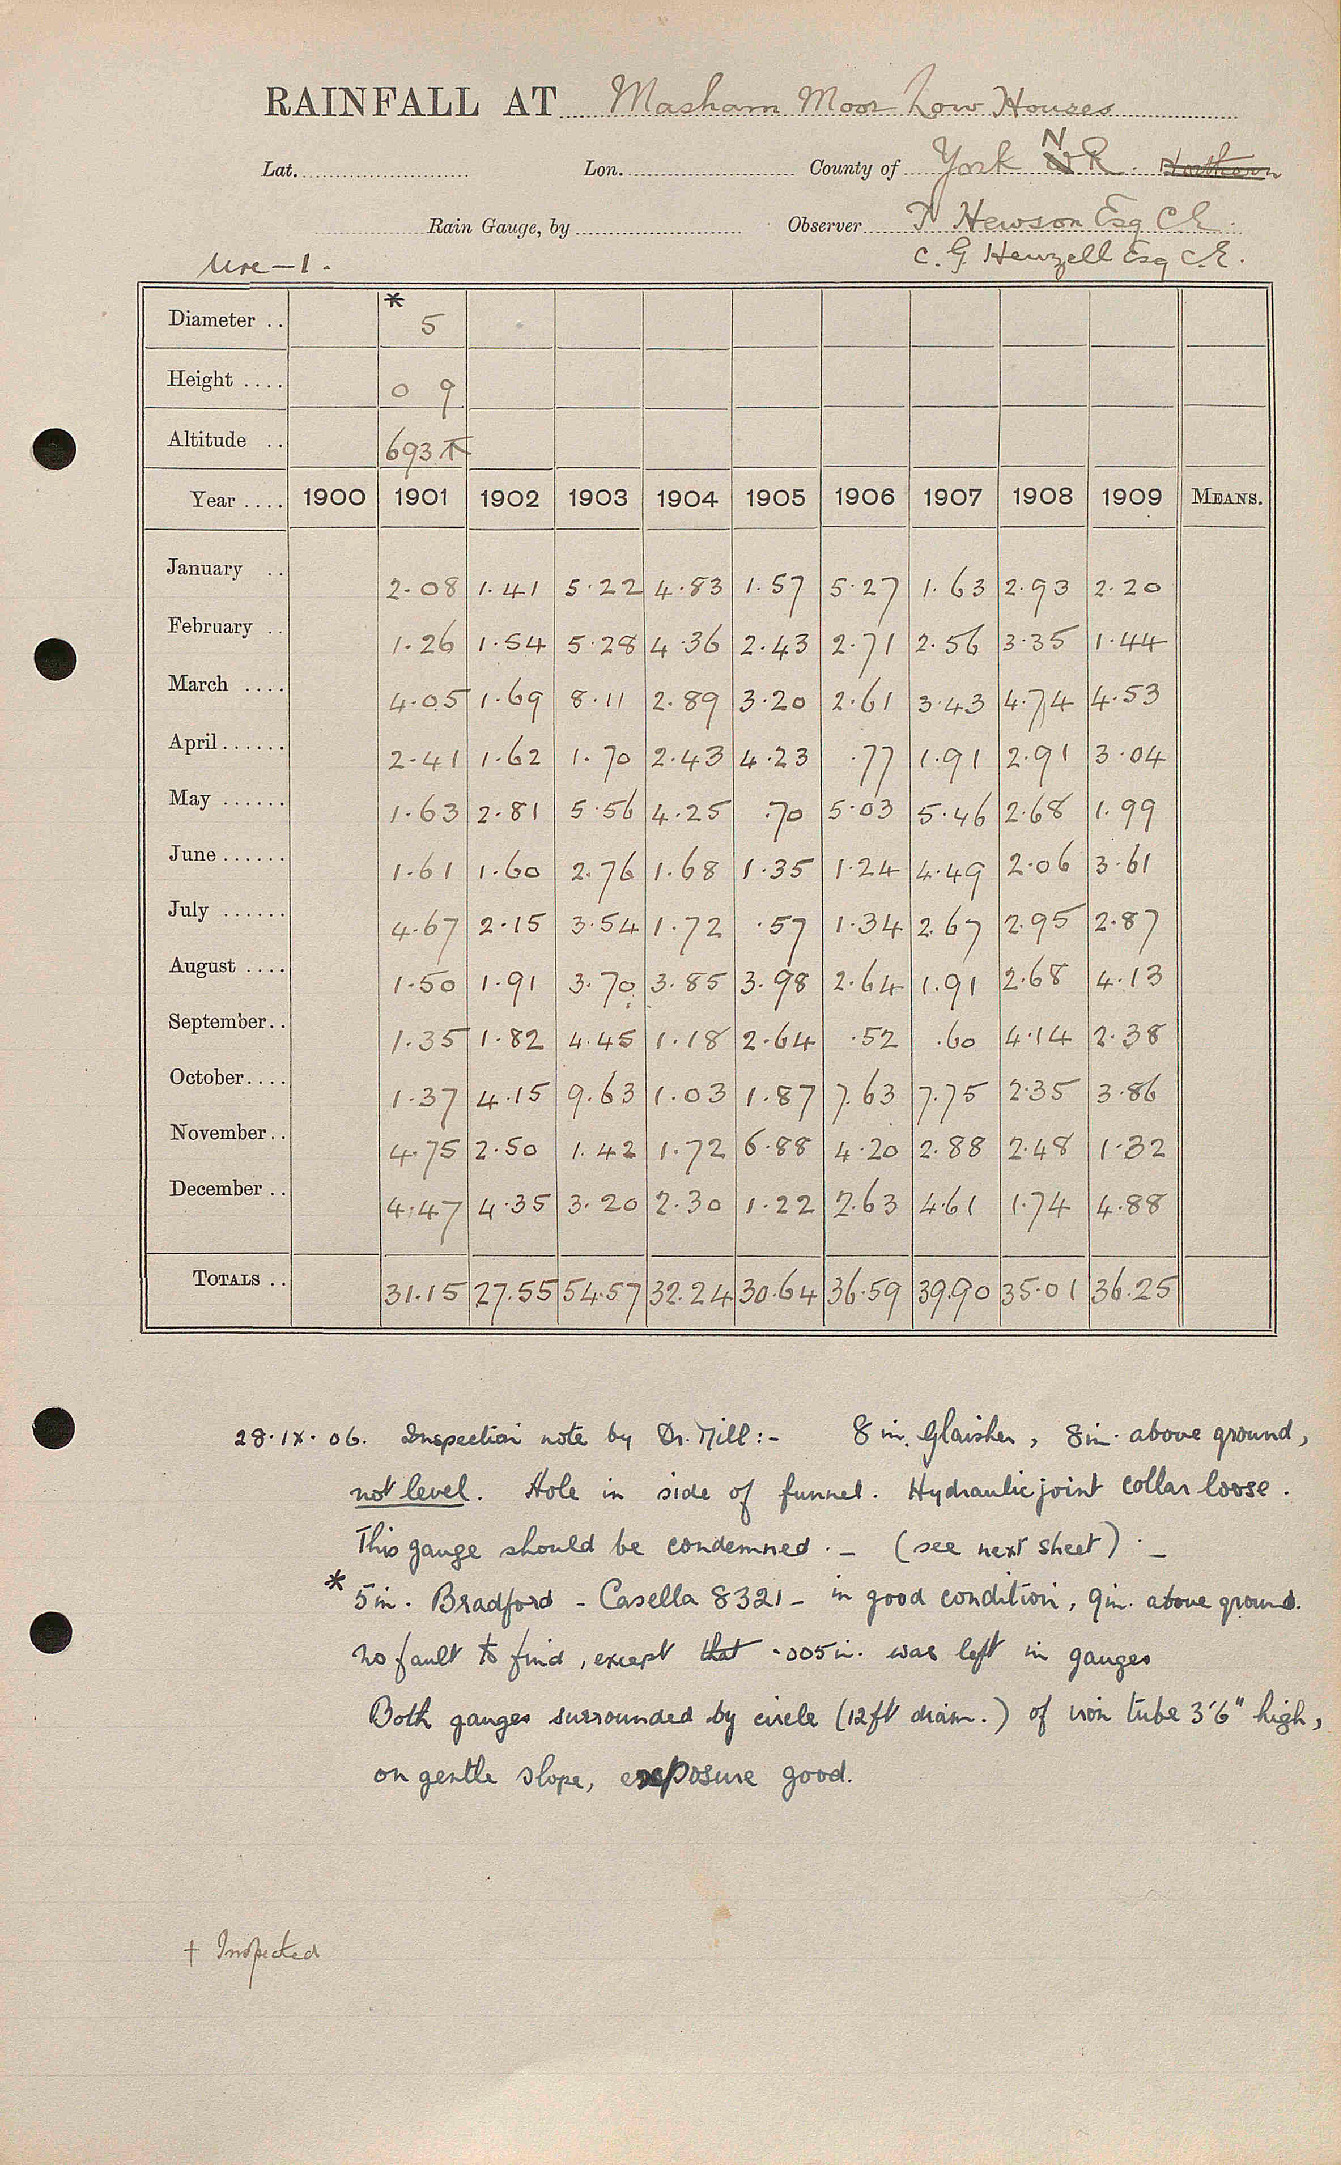 RAINFALL AT Masham Moor Low Houses
Lat. Lon. County of York N R.
Rain Gauge, by Observer T Hewson Esq C.E.
Ure-1. C. G Henzell Esq C.E.
*
Diameter .. 5
Height .... 0 9
Altitude .. 693
Year .... 1900 1901 1902 1903 1904 1905 1906 1907 1908 1909 MEANS.
January .. 2.08 1.41 5.22 4.83 1.57 5.27 1.63 2.93 2.20
February .. 1.26 1.54 5.28 4.36 2.43 2.71 2.56 3.35 1.44
March .... 4.05 1.69 8.11 2.89 3.20 2.61 3.43 4.74 4.53
April ...... 2.41 1.62 1.70 2.43 4.23 .77 1.91 2.91 3.04
May ...... 1.63 2.81 5.56 4.25 .70 5.03 5.46 2.68 1.99
June ...... 1.61 1.60 2.76 1.68 1.35 1.24 4.49 2.06 3.61
July ...... 4.67 2.15 3.54 1.72 .57 1.34 2.67 2.95 2.87
August .... 1.50 1.91 3.70 3.85 3.98 2.64 1.91 2.68 4.13
September.. 1.35 1.82 4.45 1.18 2.64 .52 .60 4.14 2.38
October.... 1.37 4.15 9.63 1.03 1.87 7.63 7.75 2.35 3.86
November.. 4.75 2.50 1.42 1.72 6.88 4.20 2.88 2.48 1.32
December .. 4.47 4.35 3.20 2.30 1.22 2.63 4.61 1.74 4.88
TOTALS .. 31.15 27.55 54.57 32.24 30.64 36.59 39.90 35.01 36.25
28.IX.06. Inspection note by Dr. Mill:- 8in. Glaisher, 8in. above ground,
not level. Hole in side of funnel. Hydraulic joint collar loose.
This gauge should be condemned. - (see next sheet). -
* 5in. Bradford - Casella 8321 - in good condition, 9in. above ground.
no fault to find, except that .005in. was left in gauges
Both gauges surrounded by circle (12ft diam.) of iron tube 3'6" high,
on gentle slope, exposure good.
† Inspected